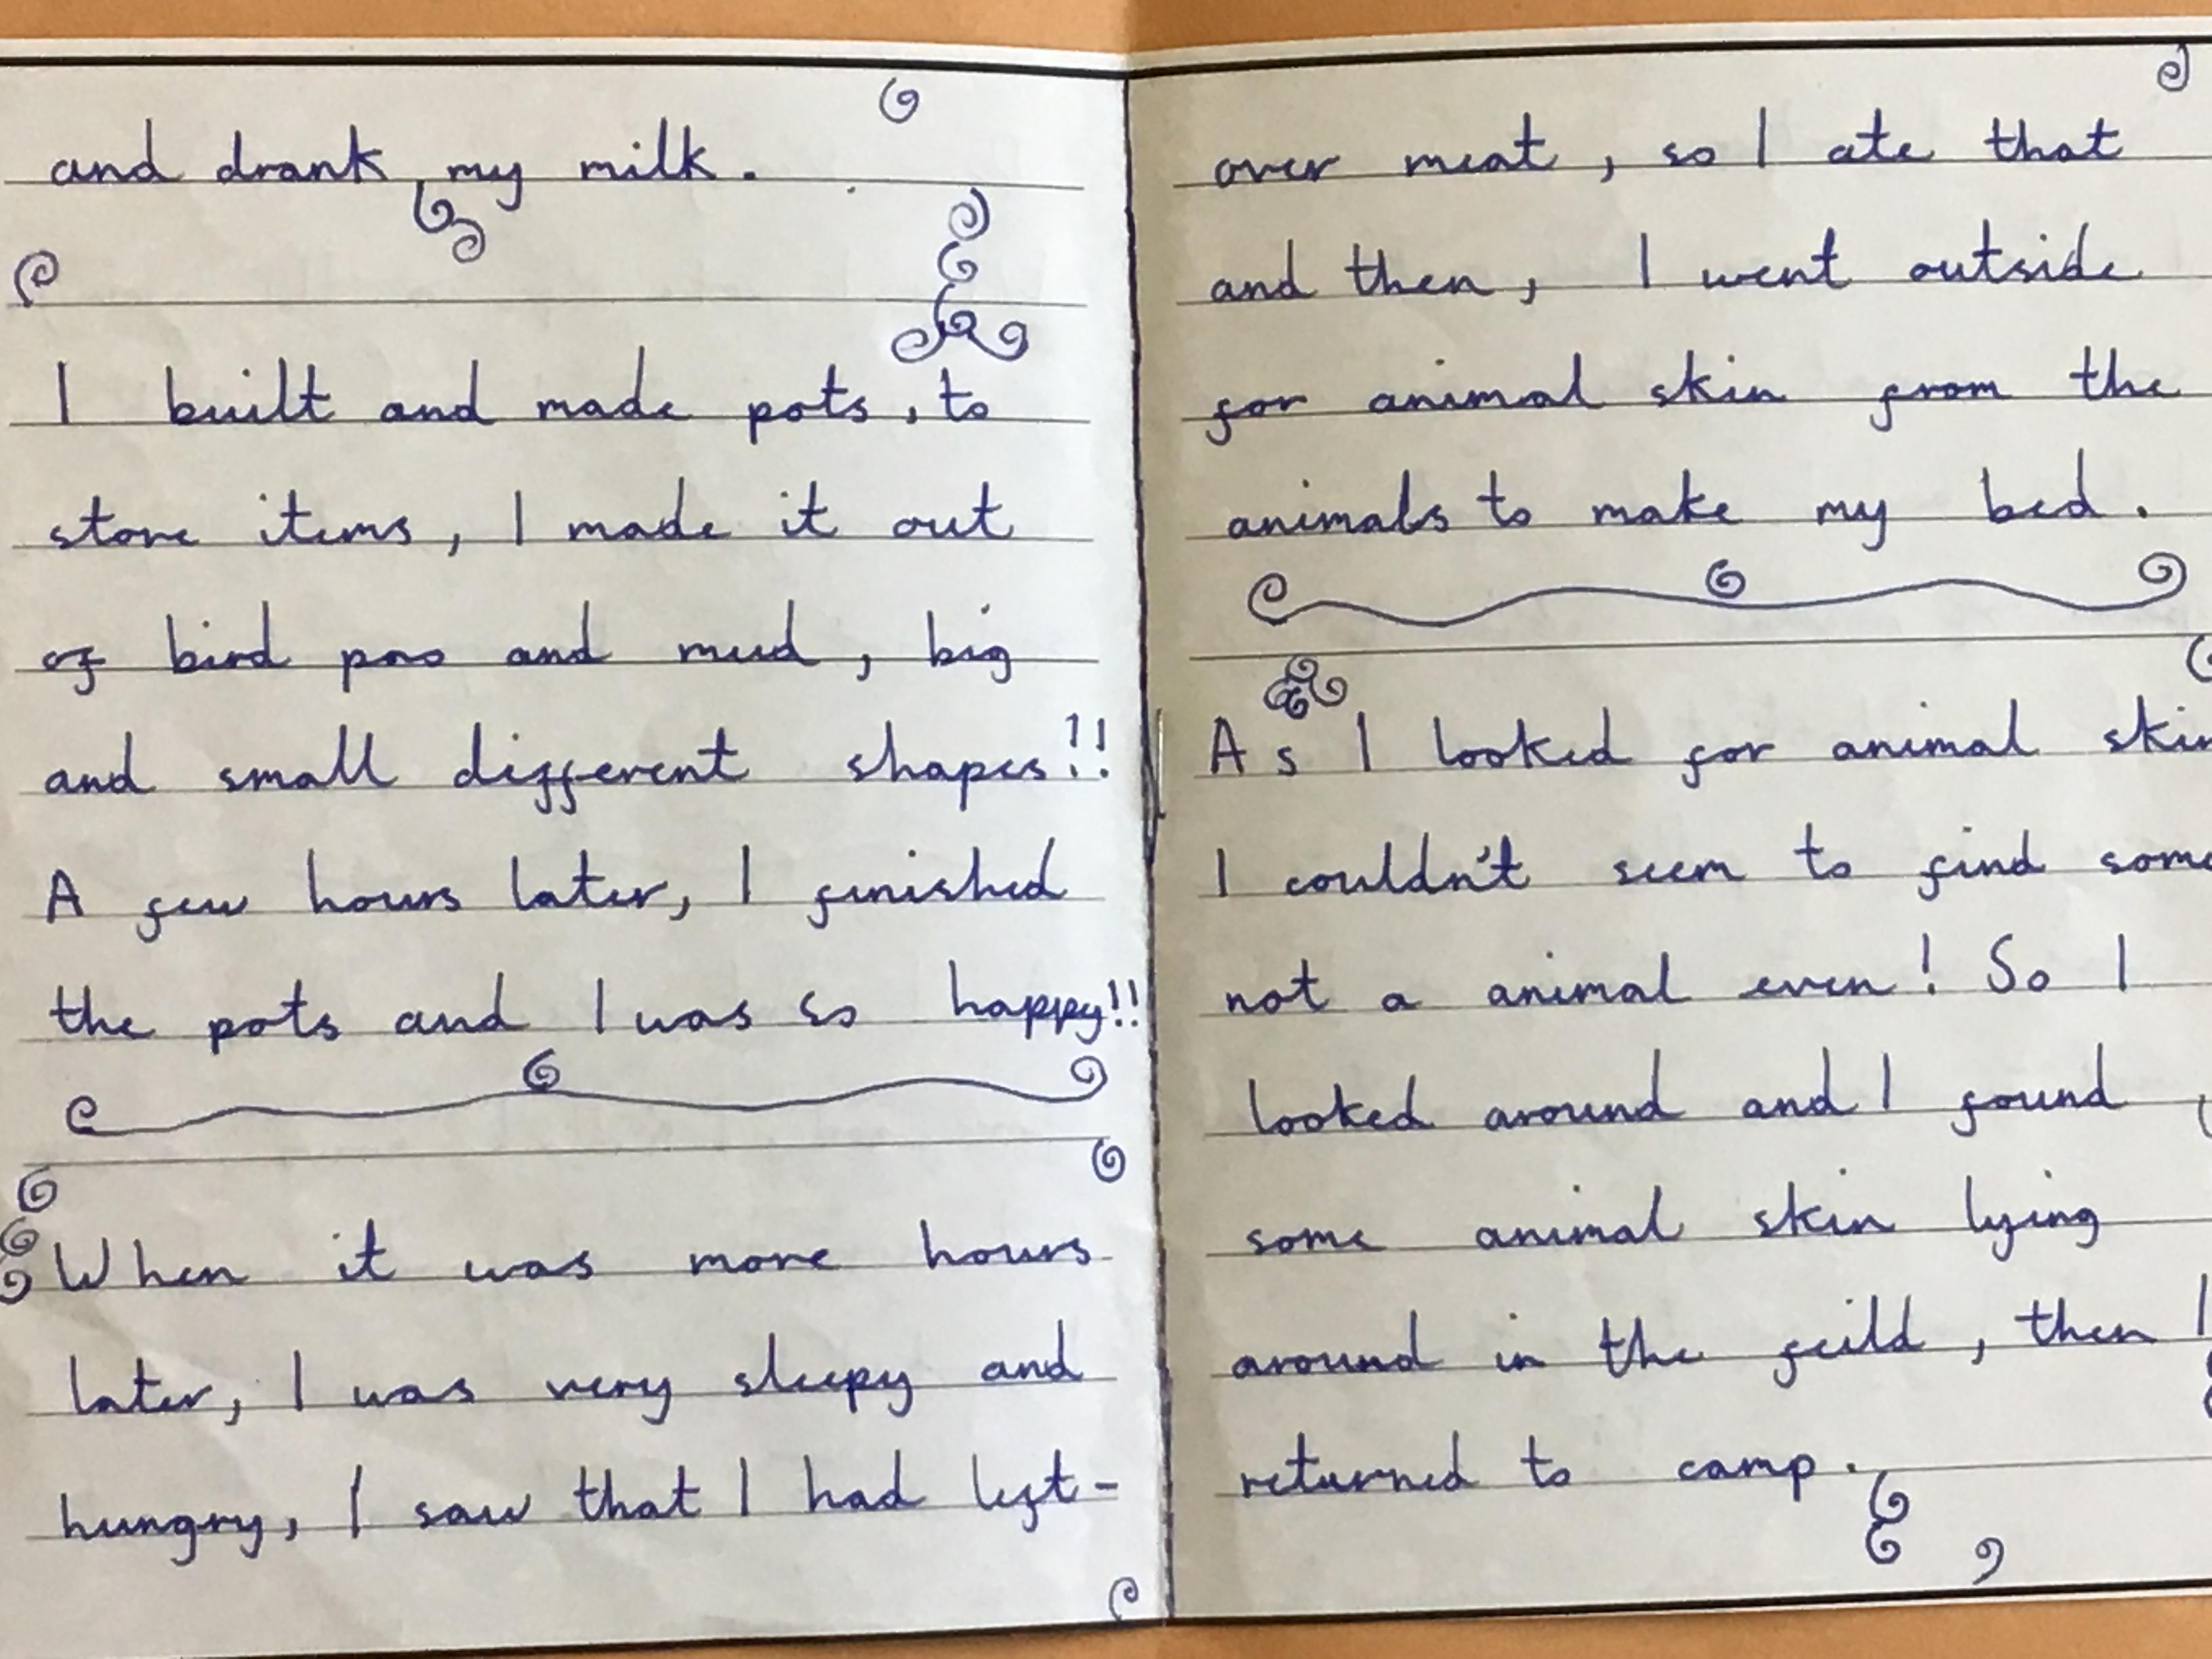 and drank my milk.
I built and made pots, to
store items, I made it out
of bird poo and mud, big
and small different shapes!!
A few hours later, I finished
the pots and I was so happy!!
When it was more hours
later, I was very sleepy and
hungry, I saw that I had left-
over meat, so I ate that
and then, I went outside
for animal skin from the
animals to make my bed.
As I looked for animal skin
I couldn't seem to find some
not a animal even! So I
looked around and I found
some animal skin lying
around in the feild, then I
returned to camp.